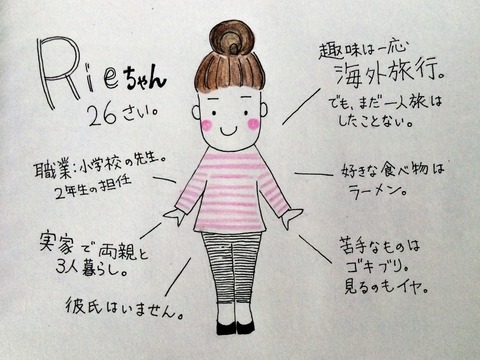 Rieちゃん
26さい。
職業:小学校の先生。
2年生の担任
実家で両親と
3人暮らし。
彼氏はいません。
趣味は一応
海外旅行。
でも、まだ一人旅は
したことない。
好きな食べ物は
ラーメン。
苦手なものは
ゴキブリ。
見るのもイヤ。